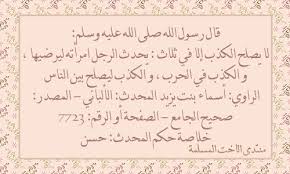 قال رسول الله صلى الله عليه وسلم:
لا يصلح الكذب إلا في ثلاث : يحدث الرجل امرأته ليرضيها ،
و الكذب في الحرب ، و الكذب ليصلح بين الناس
الراوي: أسماء بنت يزيد المحدث: الألباني - المصدر:
صحيح الجامع - الصفحة أو الرقم: 7723
خلاصة حكم المحدث: حسن
منتدى الأخت المسلمة